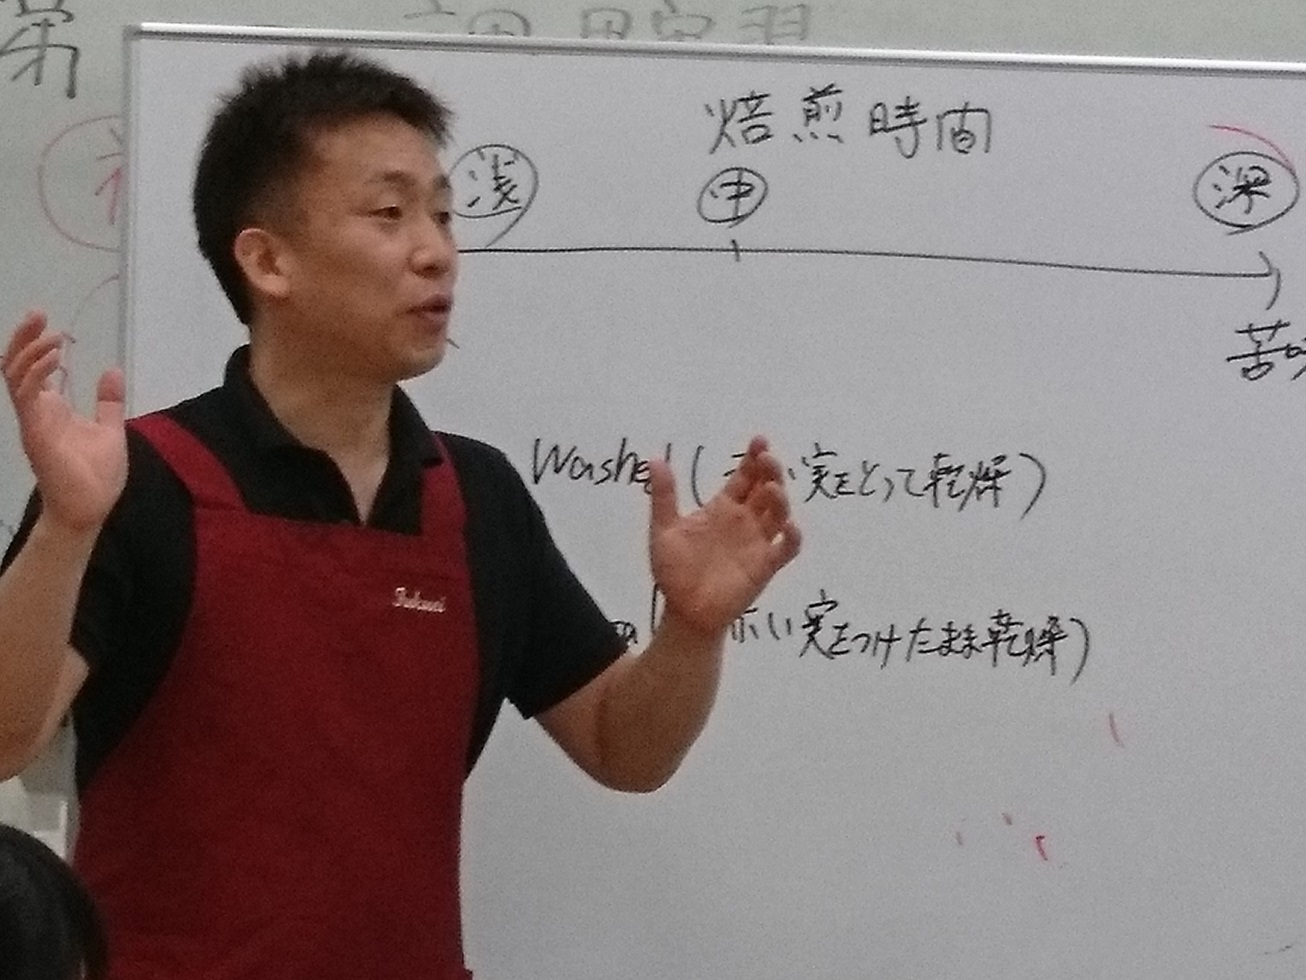 第
調理実習
焙煎時間
浅 中 深
苦味
Washed (赤い実をとって乾燥)
赤い実をつけたまま乾燥)